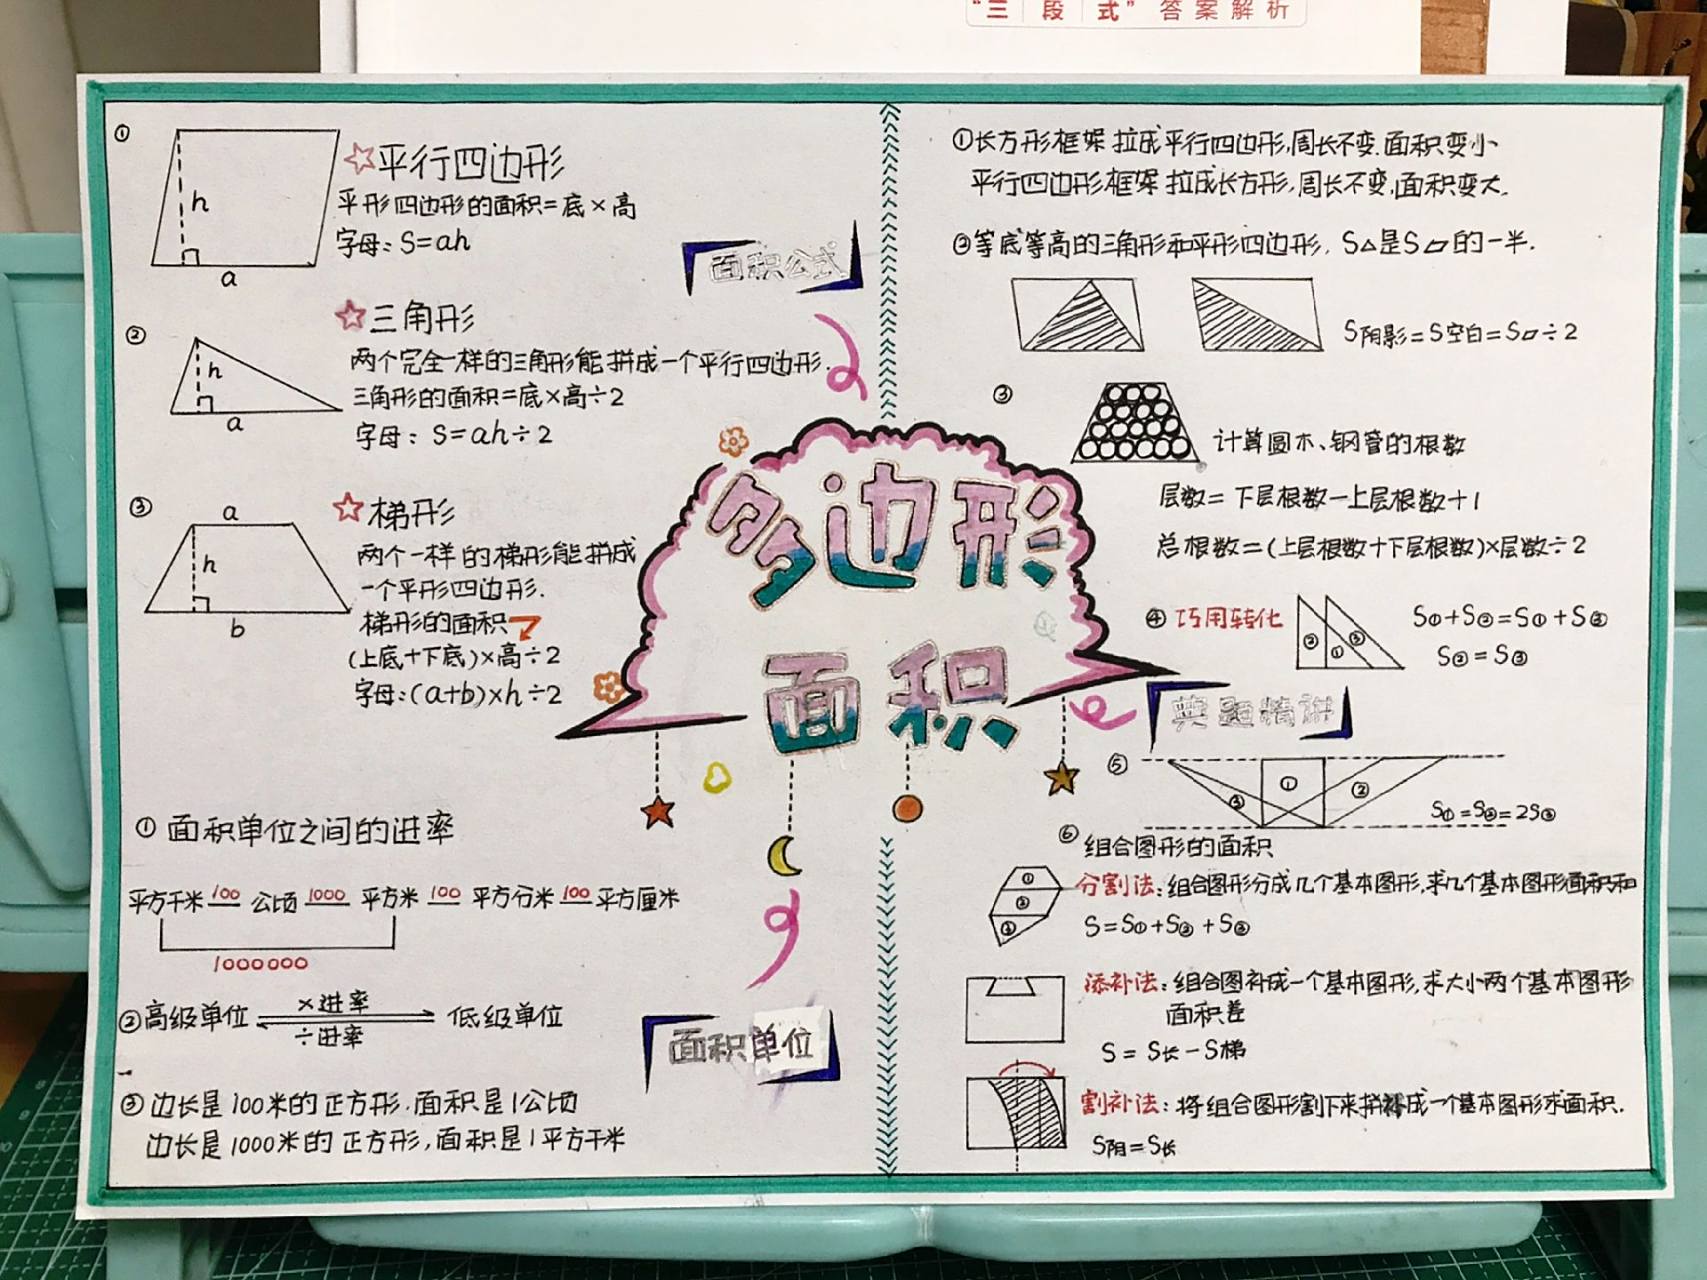 “三段式”答案解析
①
h
a
☆平行四边形
平形四边形的面积=底×高
字母：S=ah
面积公式
②
h
a
☆三角形
两个完全一样的三角形能拼成一个平行四边形.
三角形的面积=底×高÷2
字母：S=ah÷2
③
a
h
b
☆梯形
两个一样的梯形能拼成
一个平形四边形.
梯形的面积
(上底+下底)×高÷2
字母：(a+b)×h÷2
多边形
面积
①面积单位之间的进率
平方千米 100 公顷 1000 平方米 100 平方分米 100 平方厘米
1000000
②高级单位 ×进率 ÷进率 低级单位
面积单位
③边长是100米的正方形,面积是1公顷
边长是1000米的正方形,面积是1平方千米
①长方形框架拉成平行四边形,周长不变.面积变小
平行四边形框架拉成长方形,周长不变,面积变大.
②等底等高的三角形和平形四边形，S△是S▱的一半.
S阴影=S空白=S▱÷2
③
计算圆木、钢管的根数
层数=下层根数-上层根数+1
总根数=(上层根数+下层根数)×层数÷2
④巧用转化
② ① ③
S①+S②=S①+S③
S②=S③
典题精讲
⑤
③ ① ②
S①=S②=2S③
⑥组合图形的面积
① ② ③
分割法：组合图形分成几个基本图形,求几个基本图形面积和
S=S①+S②+S③
添补法：组合图补成一个基本图形,求大小两个基本图形
面积差
S=S长-S梯
割补法：将组合图形割下来拼成一个基本图形求面积.
S阴=S长